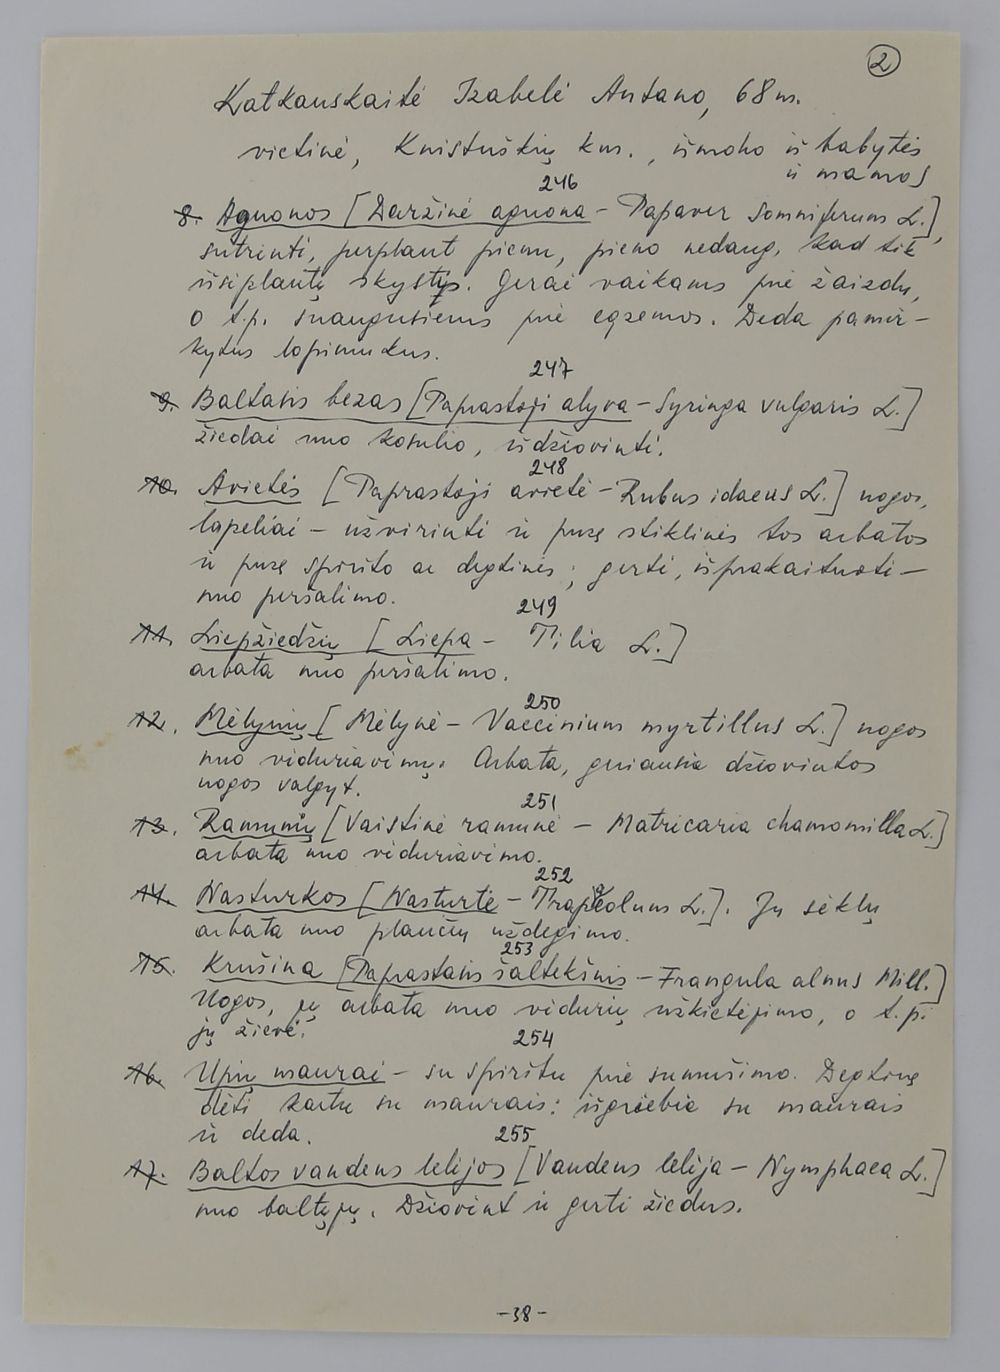 2
Katkauskaitė Izabelė Antano, 68 m.
vietinė, Knistuškių km., išmoko iš babytės
ir mamos
246
8. Aguonos [Daržinė aguona – Papaver Somniferum L.],
sutrinti, perplaut pienu, pieno nedaug, kad tik
išsiplautų skystis. Gerai vaikams prie žaizdų,
o t.p. suaugusiems prie egzemos. Deda pamir-
kytus lopinukus.
247
9. Baltasis bezas [Paprastoji alyva – Syringa vulgaris L.]
žiedai nuo kosulio, išdžiovinti.
248
10. Avietės [Paprastoji avietė – Rubus idaeus L.] uogos,
lapeliai – užvirinti ir pusę stiklinės tos arbatos
ir pusę spirito ar degtinės; gerti, išprakaituoti –
nuo peršalimo.
249
11. Liepžiedžių [Liepa – Tilia L.]
arbata nuo peršalimo.
250
12. Mėlynių [Mėlynė – Vaccinium myrtillus L.] uogos
nuo viduriavimų. Arbata, geriausia džiovintos
uogos valgyt.
251
13. Ramunių [Vaistinė ramunė – Matricaria chamomilla L.]
arbata nuo viduriavimo.
252
14. Nasturkos [Nasturtė – Trapeolum L.]. Jų sėklų
arbata nuo plaučių uždegimo.
253
15. Krušina [Paprastasis šaltekšnis – Frangula alnus Mill.]
Uogos, jų arbata nuo vidurių užkietėjimo, o t.p.
jų žievė.
254
16. Upių maurai – su spiritu prie sumušimo. Degtinę
dėti kartu su maurais: išgriebia su maurais
ir deda.
255
17. Baltos vandens lelijos [Vandens lelija – Nymphaea L.]
nuo baltųjų. Džiovint ir gerti žiedus.
-38-